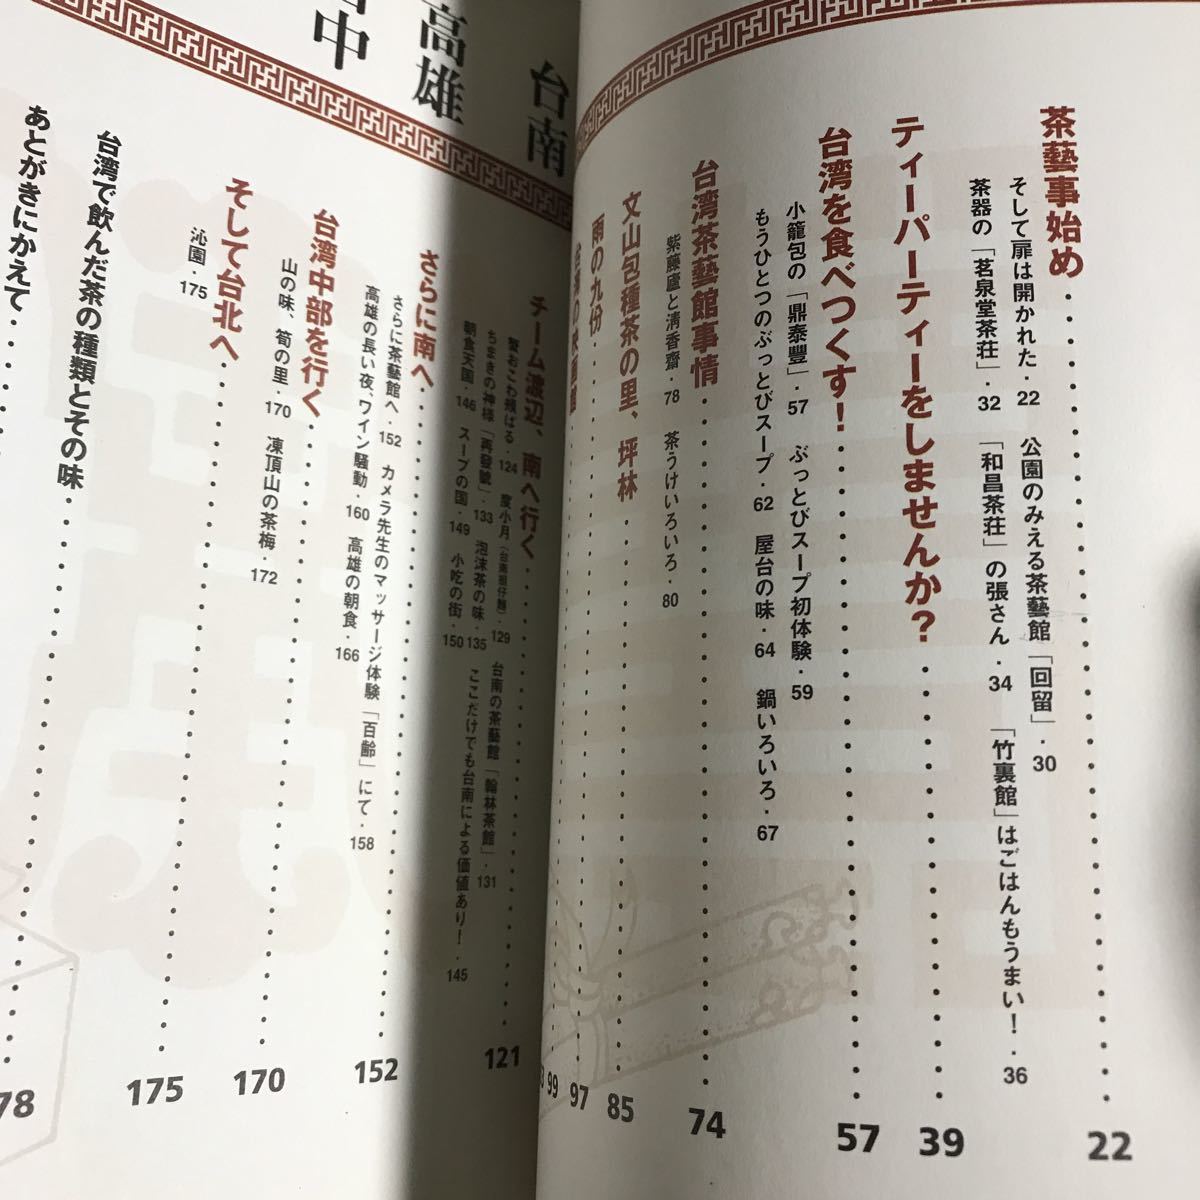 茶藝事始め 22
そして扉は開かれた・22 公園のみえる茶藝館「回留」・30
茶器の「茗泉堂茶荘」・32 「和昌茶荘」の張さん・34 「竹裏館」はごはんもうまい！・36
ティーパーティーをしませんか？ 39
台湾を食べつくす！ 57
小籠包の「鼎泰豐」・57 ぶっとびスープ初体験・59
もうひとつのぶっとびスープ・62 屋台の味・64 鍋いろいろ・67
台湾茶藝館事情 74
紫藤廬と清香齋・78 茶うけいろいろ・80
文山包種茶の里、坪林 85
雨の九份 97
99
台南
高雄
中
チーム渡辺、南へ行く 121
蟹おこわ頬ばる・124 度小月（台南担仔麺）・129 台南の茶藝館「翰林茶館」・131
ちまきの神様「再發號」・133 泡沫茶の味・135 ここだけでも台南による価値あり！・145
朝食天国・146 スープの国・149 小吃の街・150
さらに南へ 152
さらに茶藝館へ・152 カメラ先生のマッサージ体験「百齢」にて・158
高雄の長い夜、ワイン騒動・160 高雄の朝食・166
台湾中部を行く 170
山の味、筍の里・170 凍頂山の茶梅・172
そして台北へ 175
沁園・175
台湾で飲んだ茶の種類とその味 78
あとがきにかえて